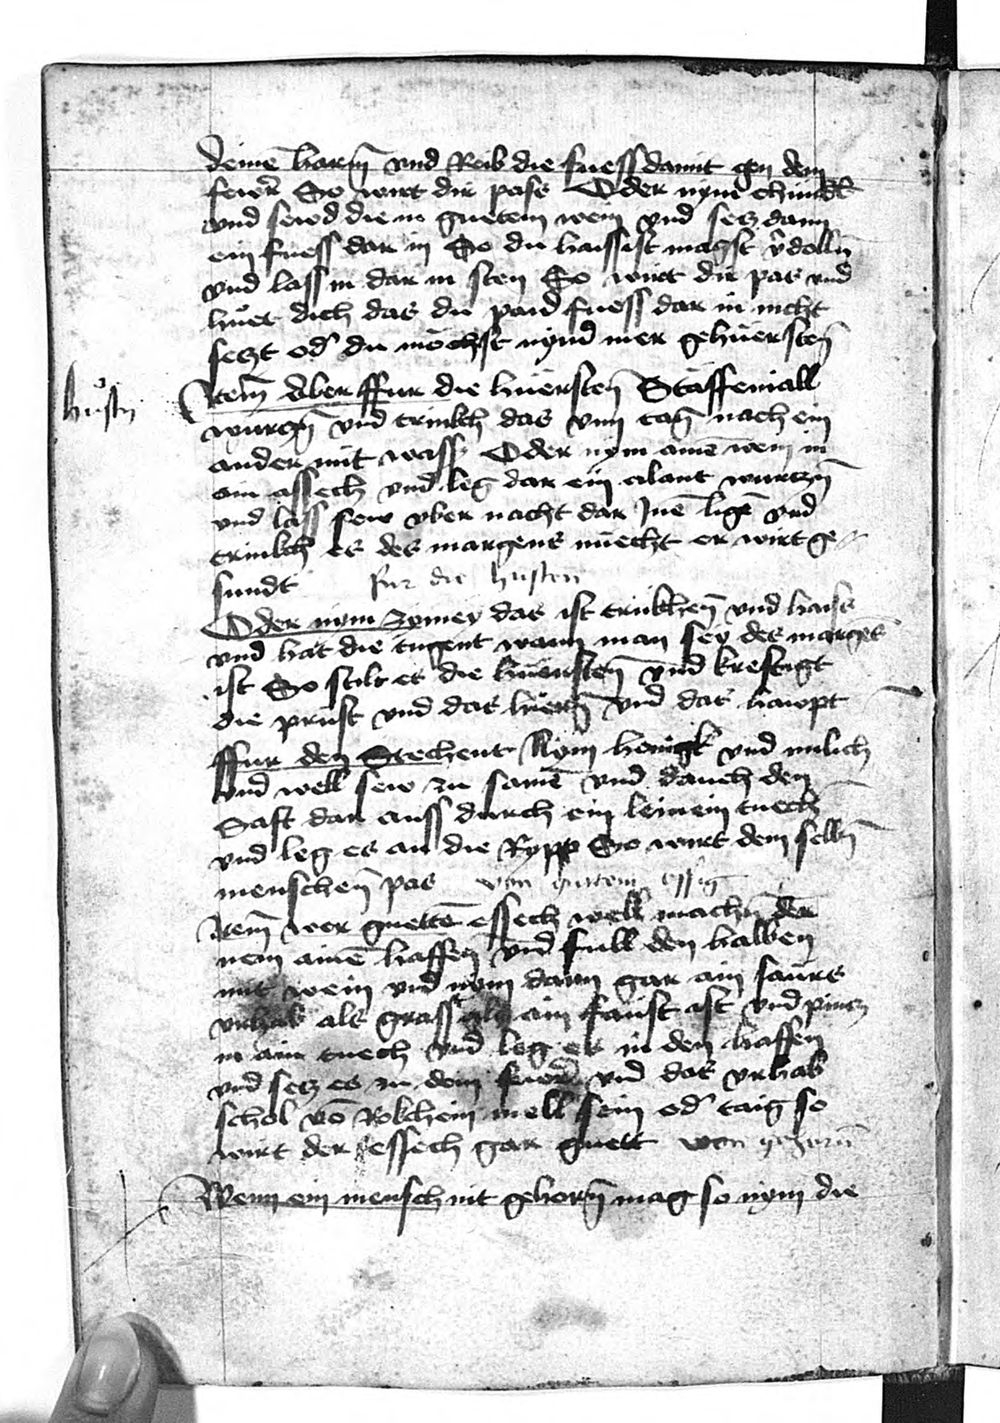 deinē harm̄ vnd Reib die fuess damit gen dem
fewr̄ So wirt dir pass Oder nym
vnd sewd die in guetem wein vnd secz dann
ein fuess dar in So du haissist magst v̄dolln̄
vnd lass in dar in sten So wirt dir pas vnd
huet dich das du paid fuess dar in nicht
seczt od du mochst nyndmer gehuersten̄
husten
Item̄ aber ffur die huersten̄ Staffeniall
wurczn̄ vnd trinkch das vnn tag nach ein
ander mit wass Oder nym ainē wein in
ain assech vnd leg dar ein alant wurczn̄
vnd lass sew vber nacht dar Inē ligē vnd
trinkch es des margens nuecht er wirt ge
sundt fur die husten
Oder nym zymey das ist trukhen̄ vnd haiss
vnd hat die tugent wann man sey des margēs
ist So stilt es die huersten̄ vnd kreftigt
die prust vnd das hiern̄ vnd das hawpt
ffur den Stechent Nym honigk vnd milich
vnd well sew zu samē vnd dauch den
Saft dar auss durch ein leinein tuech
vnd leg es an die Rypp So wirt dem selbn̄
menschen̄ pas von guttem essig
Item̄ wer guettē essech well machn̄ der
nem ainē haffen̄ vnd full den halben
mit wein vnd nym dann gar ain saurs
vrhab als gross als ain faust ist vnd pintz
in ain tuech vnd leg es in den haffen
vnd secz es zu dem fewr̄ vnd das vrhab
schol vō Rokchein mell sein od taig so
wirt der essech gar guett von gehorn̄
Wenn ein mensch nit gehorn̄ mag so nym die